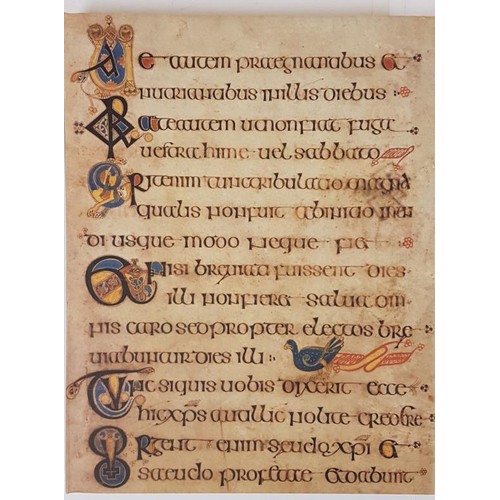 Uae autem praegnantibus et
nutrientibus in illis diebus
Orate autem ut non fiat fuga
uestra hieme uel sabbato
Erit enim tunc tribulatio magna
qualis non fuit ab initio mun
di usque modo neque fiet
Et nisi breuiati fuissent dies
illi non fieret salua om
nis caro sed propter electos bre
uiabuntur dies illi
Tunc si quis uobis dixerit ecce
hic xps aut illic nolite credere
Surgent enim seudo xpi et
seudo profetae et dabunt